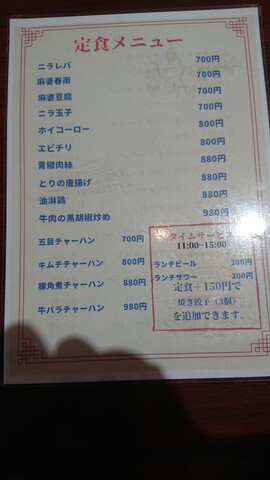 定食メニュー
ニラレバ 700円
麻婆春雨 700円
麻婆豆腐 700円
ニラ玉子 800円
ホイコーロー 800円
エビチリ 880円
青椒肉絲 880円
とりの唐揚げ 880円
油淋鶏 880円
牛肉の黒胡椒炒め 980円
五目チャーハン 700円
キムチチャーハン 800円
豚角煮チャーハン 880円
牛バラチャーハン 980円
タイムサービス
11:00-15:00
ランチビール 300円
ランチサワー 200円
定食+150円で
焼き餃子(3個)
を追加できます。